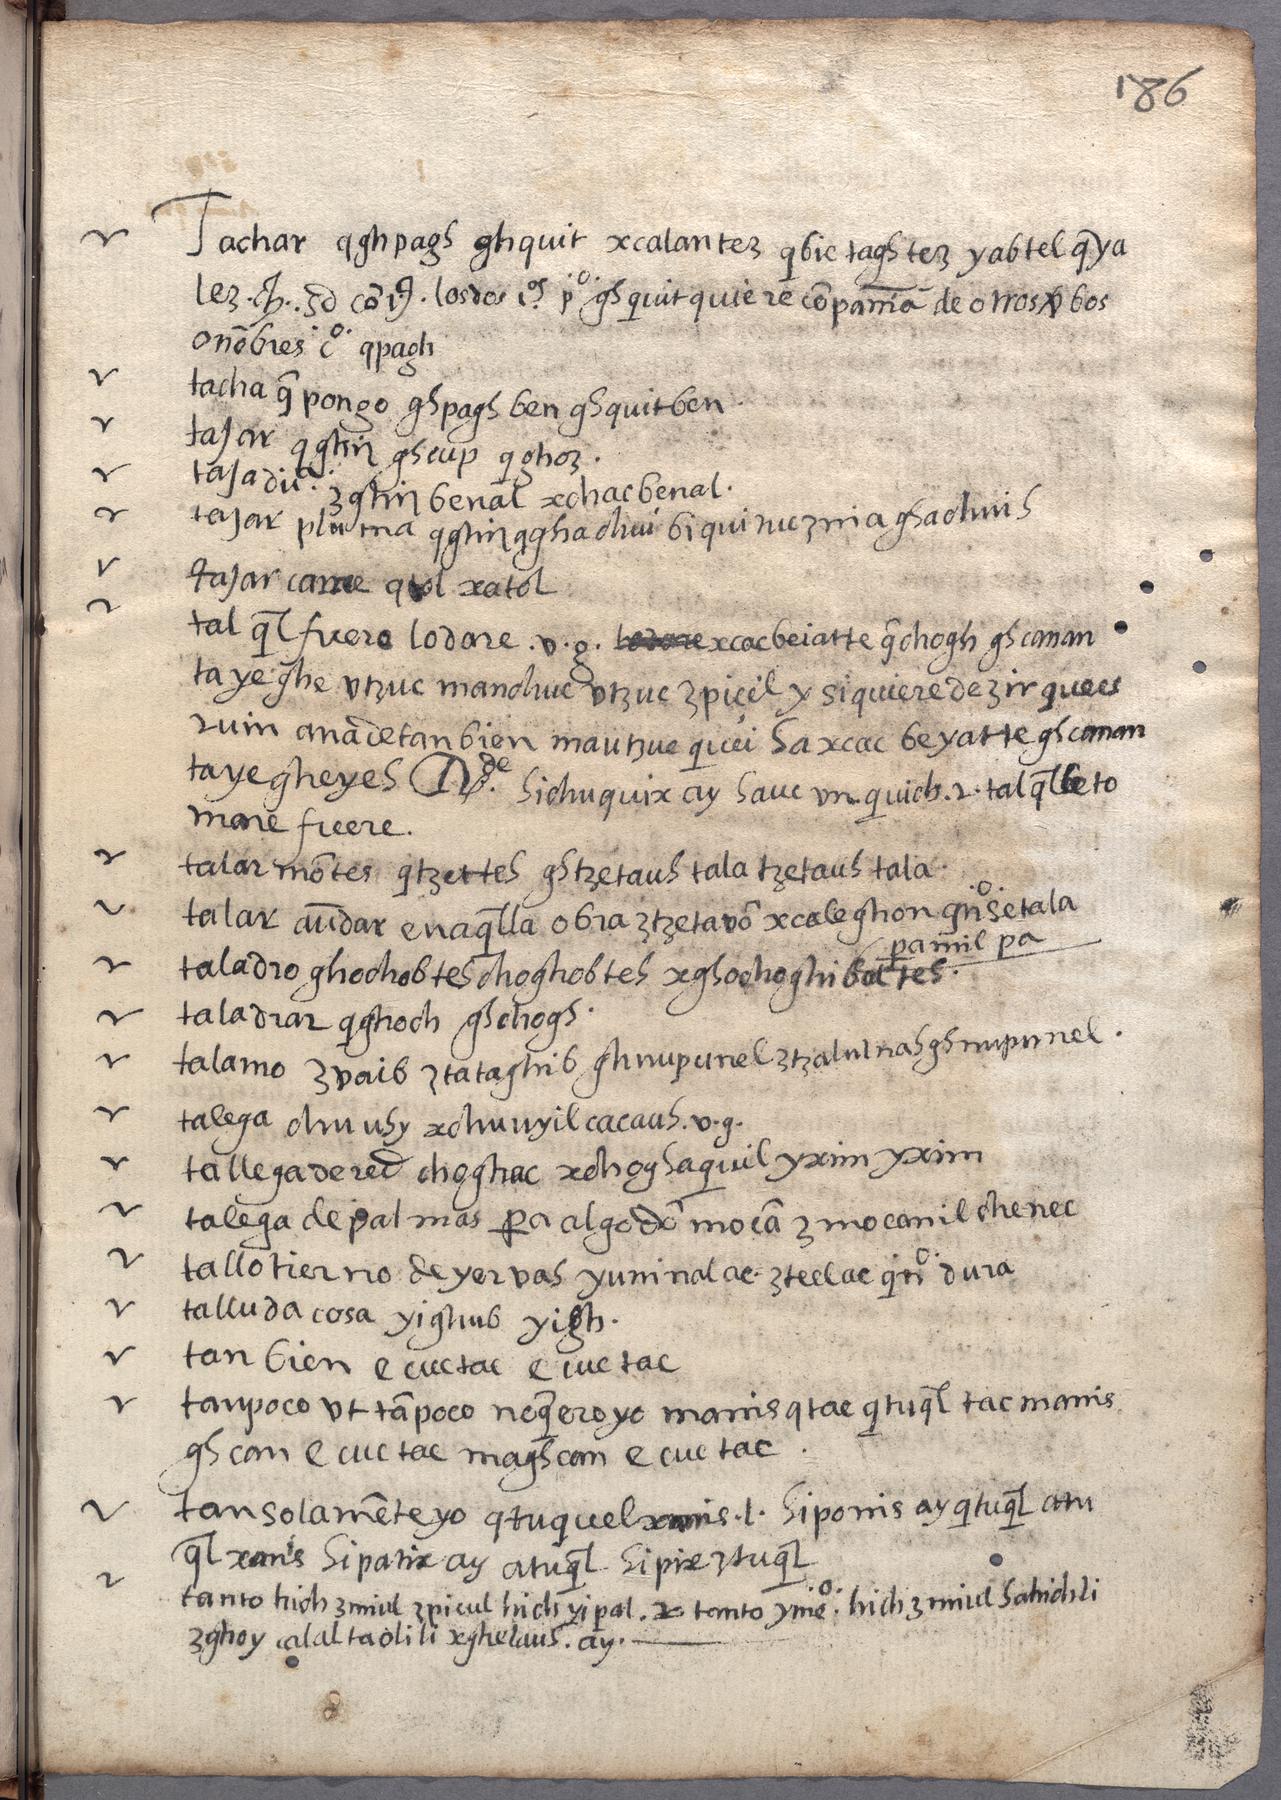 186
Tachar qghpagh ghquit xcalantez qbic taghtez yabtel q̃ya
lez. los dos ghquit quiere cõpañia de otros
onõbres cº qpagh
tacha q̃ pongo ghpaghben ghquitben
tajar qghiɳ ghcup qghoz.
tajadura. zghiɳ benal xchacbenal.
tajar pluma qghiɳ qghachui
tajar carne qtol xatol
tal q̃l fuere lo dare .v.g. xcacbeiatte q̃chogh ghcanan
tayeghe vtzuc manchuc vtzuc zpicil y si quiere dezir que es
ruin anãde tanbien mautzuc quci ha xcac beyatte ghcanan
tayegheyeh hichuquix ay hauc vn quich .r. tal q̃l le to
mare fuere.
talar mõtes qtzetteh ghtzetauh tala tzetauh tala.
talar aũdar en aq̃lla obra ztzetavõ xcaleghon gñº se tala
pamil pa
taladro ghochobteh choghobteh xghochoghibalteh.
taladrar qghoch ghchogh.
talamo zvaib ztataghib ghnupunel ztzalulnah ghnupunel.
talega chuuhy xchuuyil cacauh. v.g.
tallega de red choghac xchoghaquil yxim yxim
talega de palmas p̱a algodõ mocã z mocanil chenec
tallo tierno de yervas yuninal ac. zteelac qñº dura
talluda cosa yighub yigh.
tan bien e cuctac e cuctac
tanpoco vt tãpoco noq̃ero yo manis qtac qtuq̃l tac manis
gh can e cuc tac maghcan e cuc tac .
tan solamẽte yo qtuquel xanis .l. hiponis ay qtuq̃l atu
q̃l xanis hipatix ay atuq̃l hipix ztuq̃l
tanto hich zmiul zpicul hich yipal . x tanto ymẽº. hich zmiul hahichli
zghoy calal taolili xghelauh. ay.